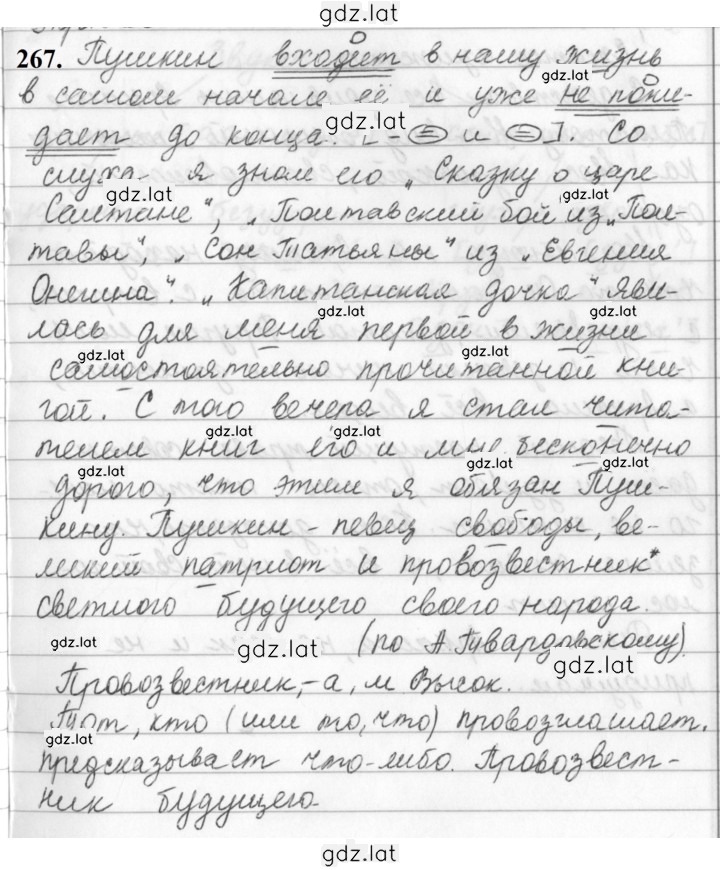 gdz.lat
267. Пушкин входит в нашу жизнь
gdz.lat
в самом начале её и уже не поки-
gdz.lat
дает до конца. [- и ]. Со
слуха я знал его „Сказку о царе
gdz.lat
gdz.lat
Салтане", „Полтавский бой" из „Пол-
тавы", „Сон Татьяны" из „Евгения
Онегина". „Капитанская дочка" яви-
лась для меня первой в жизни
gdz.lat
gdz.lat
самостоятельно прочитанной кни-
гой. С того вечера я стал чита-
gdz.lat
gdz.lat
телем книг его и мне бесконечно
gdz.lat
gdz.lat
gdz.lat
дорого, что этим я обязан Пуш-
кину. Пушкин - певец свободы, ве-
ликий патриот и провозвестник*
светлого будущего своего народа.
gdz.lat
gdz.lat
gdz.lat
(по А. Твардовскому)
Провозвестник, -а, м Высок.
Тот, кто (или то, что) провозглашает,
gdz.lat
предсказывает что-либо. Провозвест-
ник будущего.
gdz.lat